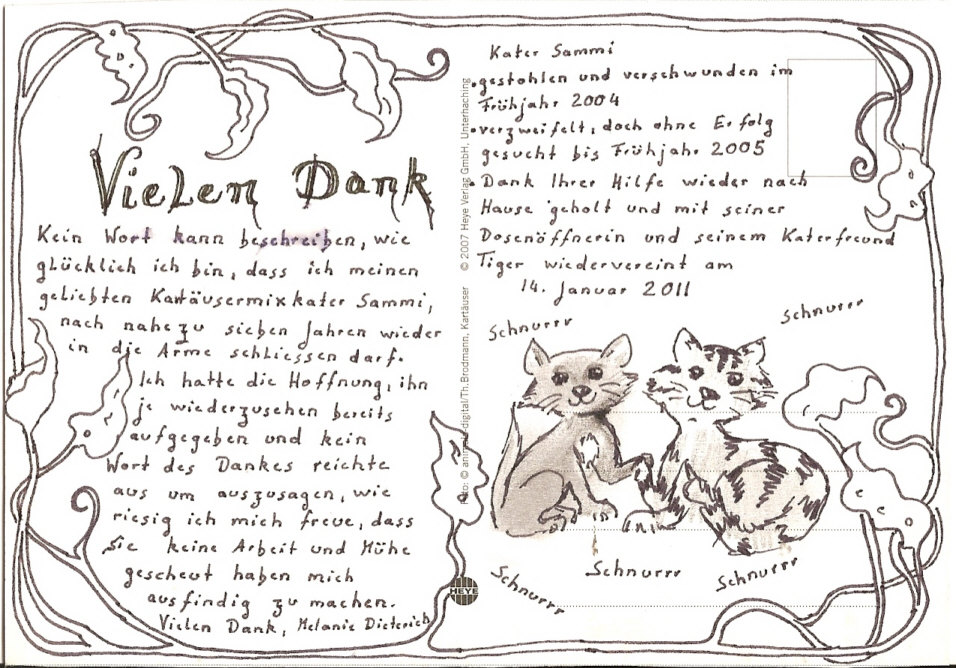 Vielen Dank
Kein Wort kann beschreiben, wie
glücklich ich bin, dass ich meinen
geliebten Kartäusermixkater Sammi,
nach nahezu sieben Jahren wieder
in die Arme schliessen darf.
Ich hatte die Hoffnung, ihn
je wiederzusehen bereits
aufgegeben und kein
Wort des Dankes reichte
aus um auszusagen, wie
riesig ich mich freue, dass
Sie keine Arbeit und Mühe
gescheut haben mich
ausfindig zu machen.
Vielen Dank, Melanie Dieterich
Foto: © animal-digital/Th.Brodmann, Kartäuser © 2007 Heye Verlag GmbH, Unterhaching
HEYE
Kater Sammi
• gestohlen und verschwunden im
Frühjahr 2004
• verzweifelt, doch ohne Erfolg
gesucht bis Frühjahr 2005
• Dank Ihrer Hilfe wieder nach
Hause geholt und mit seiner
Dosenöffnerin und seinem Katerfreund
Tiger wiedervereint am
14. Januar 2011
Schnurrr
Schnurrr
Schnurrr
Schnurrr
Schnurrr